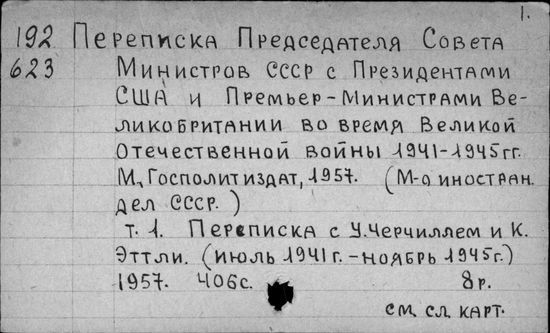 1.
192 Переписка Председателя Совета
623 Министров СССР с Президентами
США и Премьер-Министрами Ве-
ликобритании во время Великой
Отечественной войны 1941-1945гг.
М., Госполитиздат, 1957. (М-о иностран.
дел СССР.)
т. 1. Переписка с У.Черчиллем и К.
Эттли. (июль 1941г.-ноябрь 1945г.)
1957. 406с. 8р.
см. сл. карт.